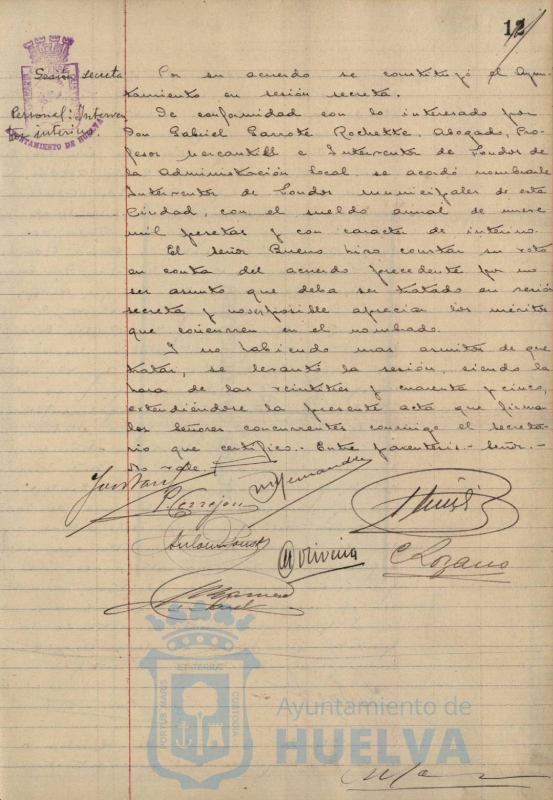 12
Sesión secreta
Por su acuerdo se constituyó el Ayun-
tamiento en sesión secreta.
Personal: Interven
tor interino
AYUNTAMIENTO DE HUELVA
De conformidad con lo interesado por
Don Gabriel Garrote Rochette, Abogado, Pro-
fesor Mercantil e Interventor de Fondos de
la Administración Local se acordó nombrarle
Interventor de Fondos municipales de esta
Ciudad, con el sueldo anual de nueve
mil pesetas y con caracter de interino.
El señor Bueno hizo constar su voto
en contra del acuerdo precedente por no
ser asunto que deba ser tratado en sesión
secreta y no ser posible apreciar los méritos
que concurren en el nombrado.
Y no habiendo mas asuntos de que
tratar, se levantó la sesión, siendo la
hora de las veintitres y cuarenta y cinco,
extendiéndose la presente acta que firman
los Señores concurrentes conmigo el secreta-
rio que certifico.- Entre parentesis.- Señor.-
No vale.
P. Cerrejon
M Hernandez
A Oliveira
C Lozano
PORTUS MARIS ET TERRAE CUSTODIA
Ayuntamiento de
HUELVA